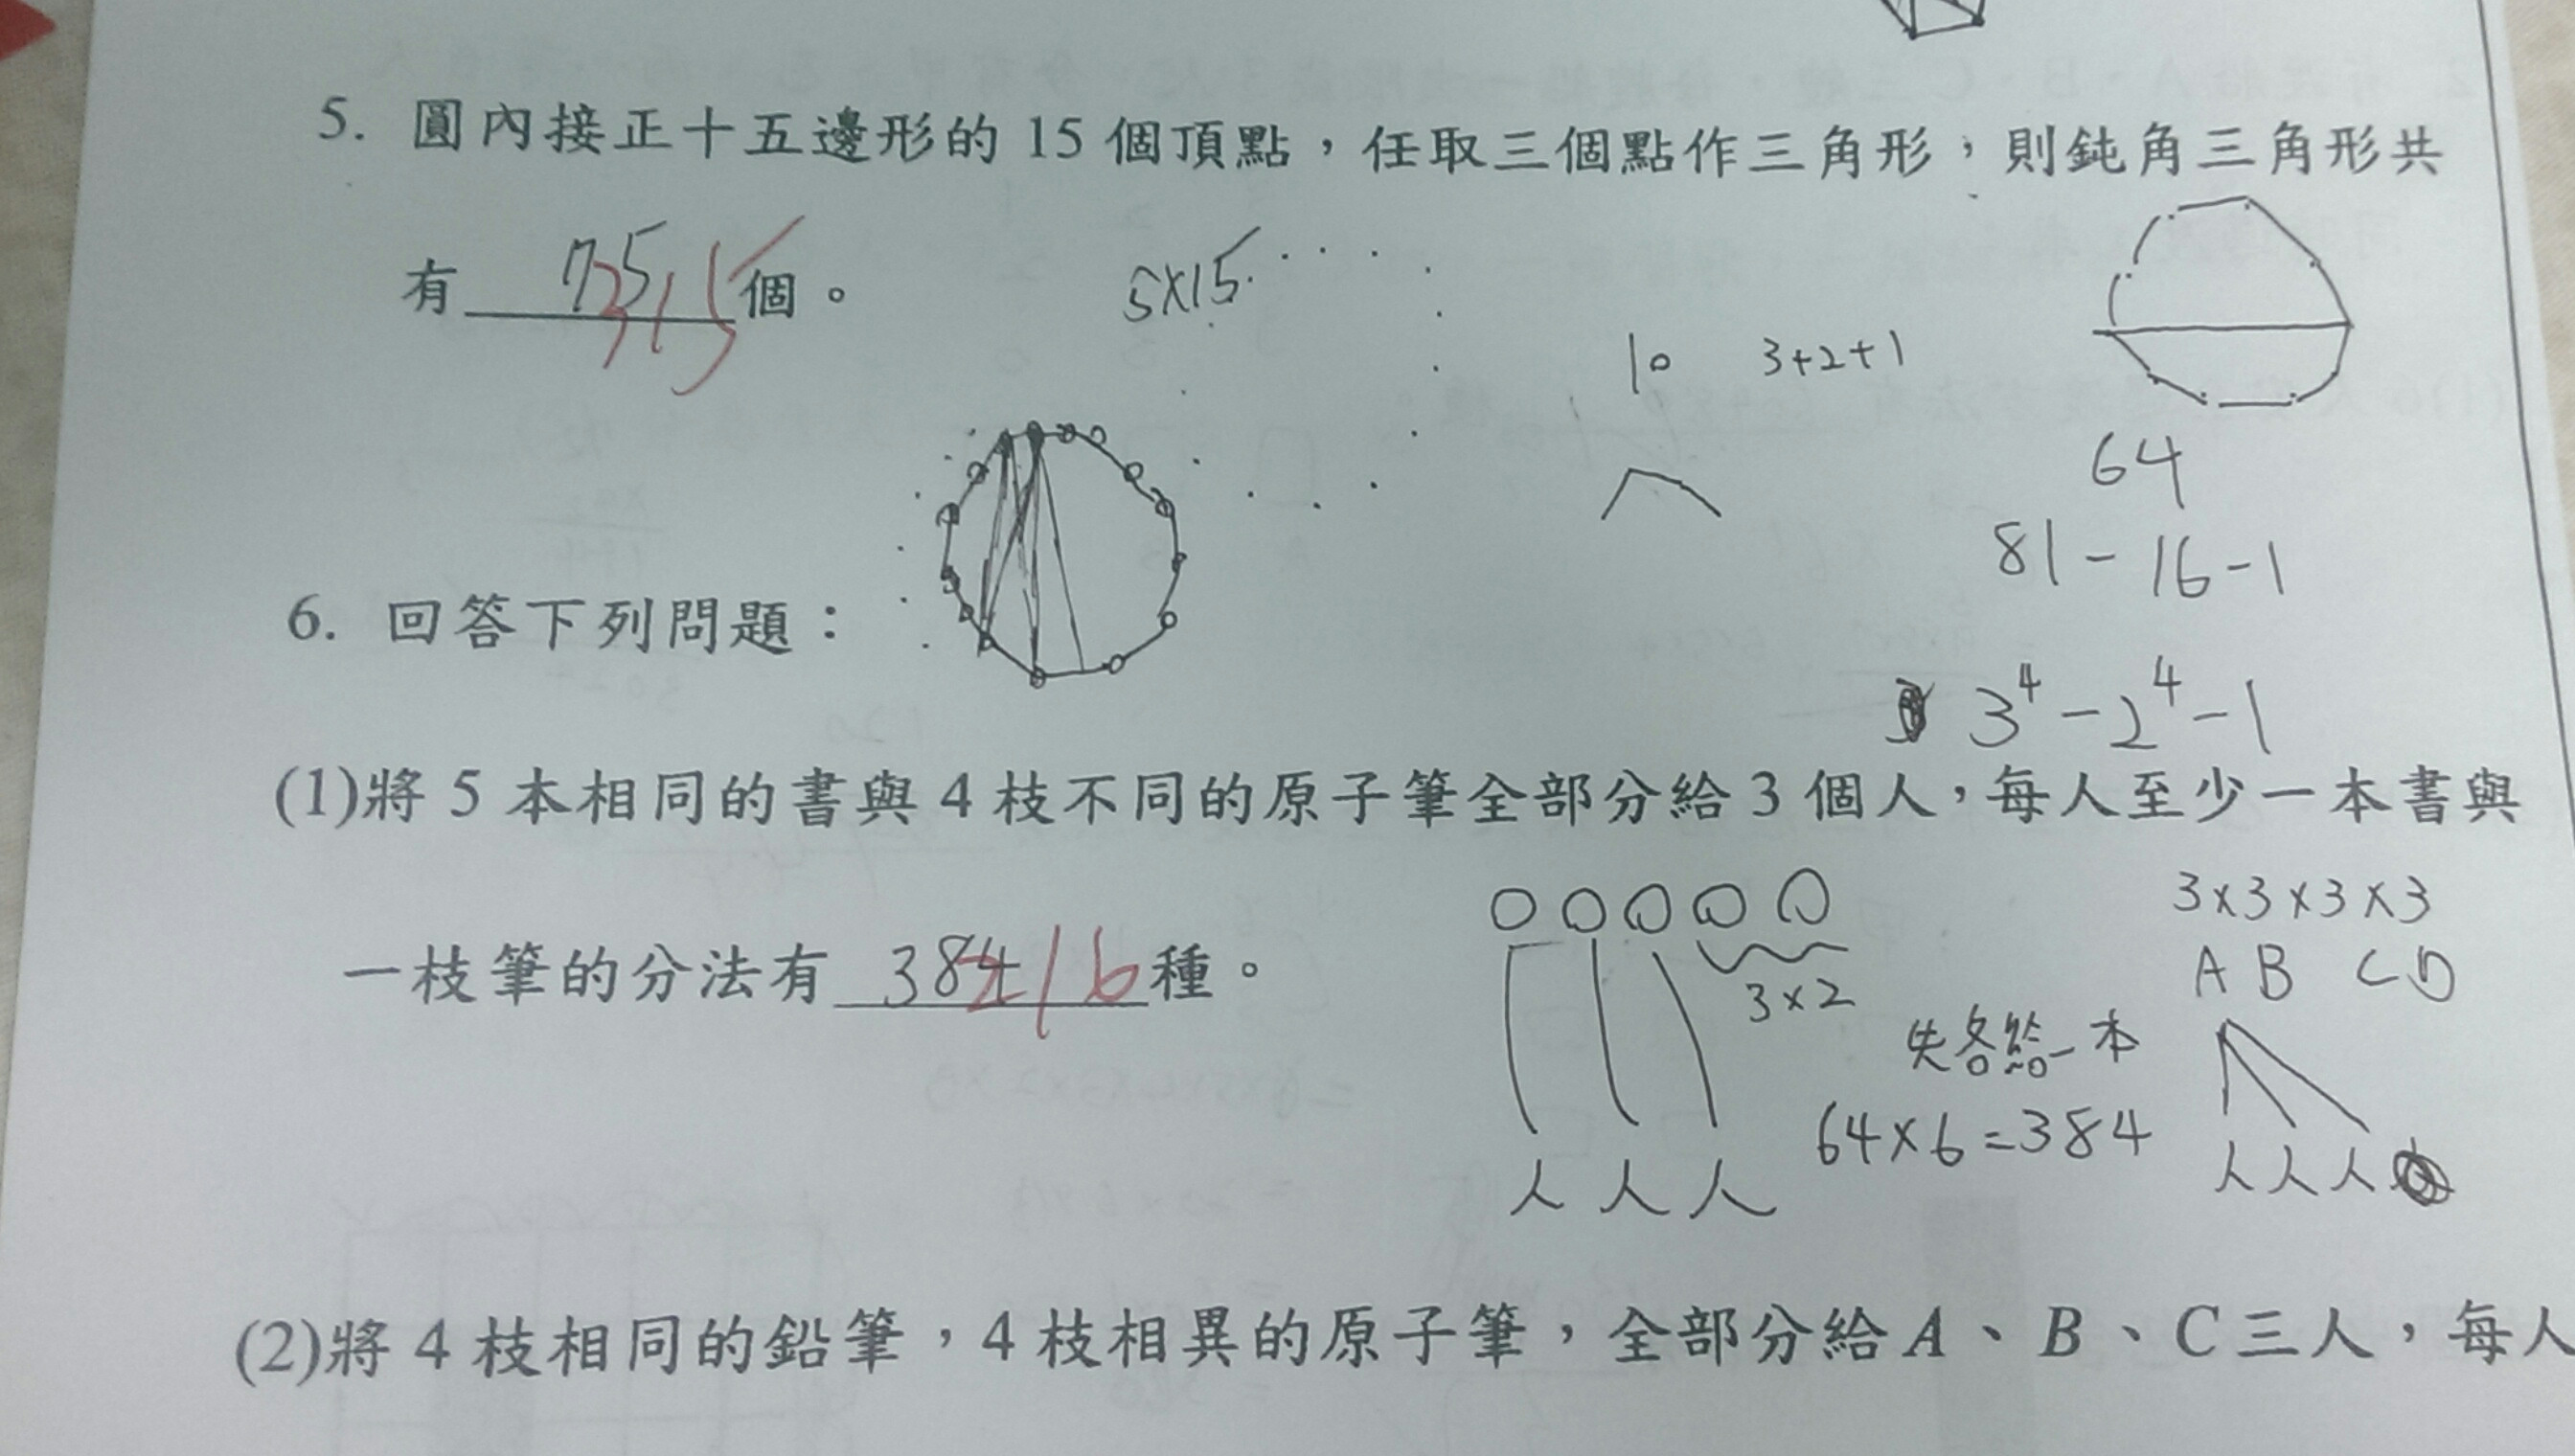 5. 圓內接正十五邊形的 15 個頂點，任取三個點作三角形，則鈍角三角形共
有 75 315 個。
5×15
10 3+2+1
64
81-16-1
3⁴-2⁴-1
6. 回答下列問題：
(1)將 5 本相同的書與 4 枝不同的原子筆全部分給 3 個人，每人至少一本書與
一枝筆的分法有 384 216 種。
3×2
3×3×3×3
A B C D
先各給一本
64×6=384
人 人 人
人 人 人
(2)將 4 枝相同的鉛筆，4 枝相異的原子筆，全部分給 A、B、C 三人，每人